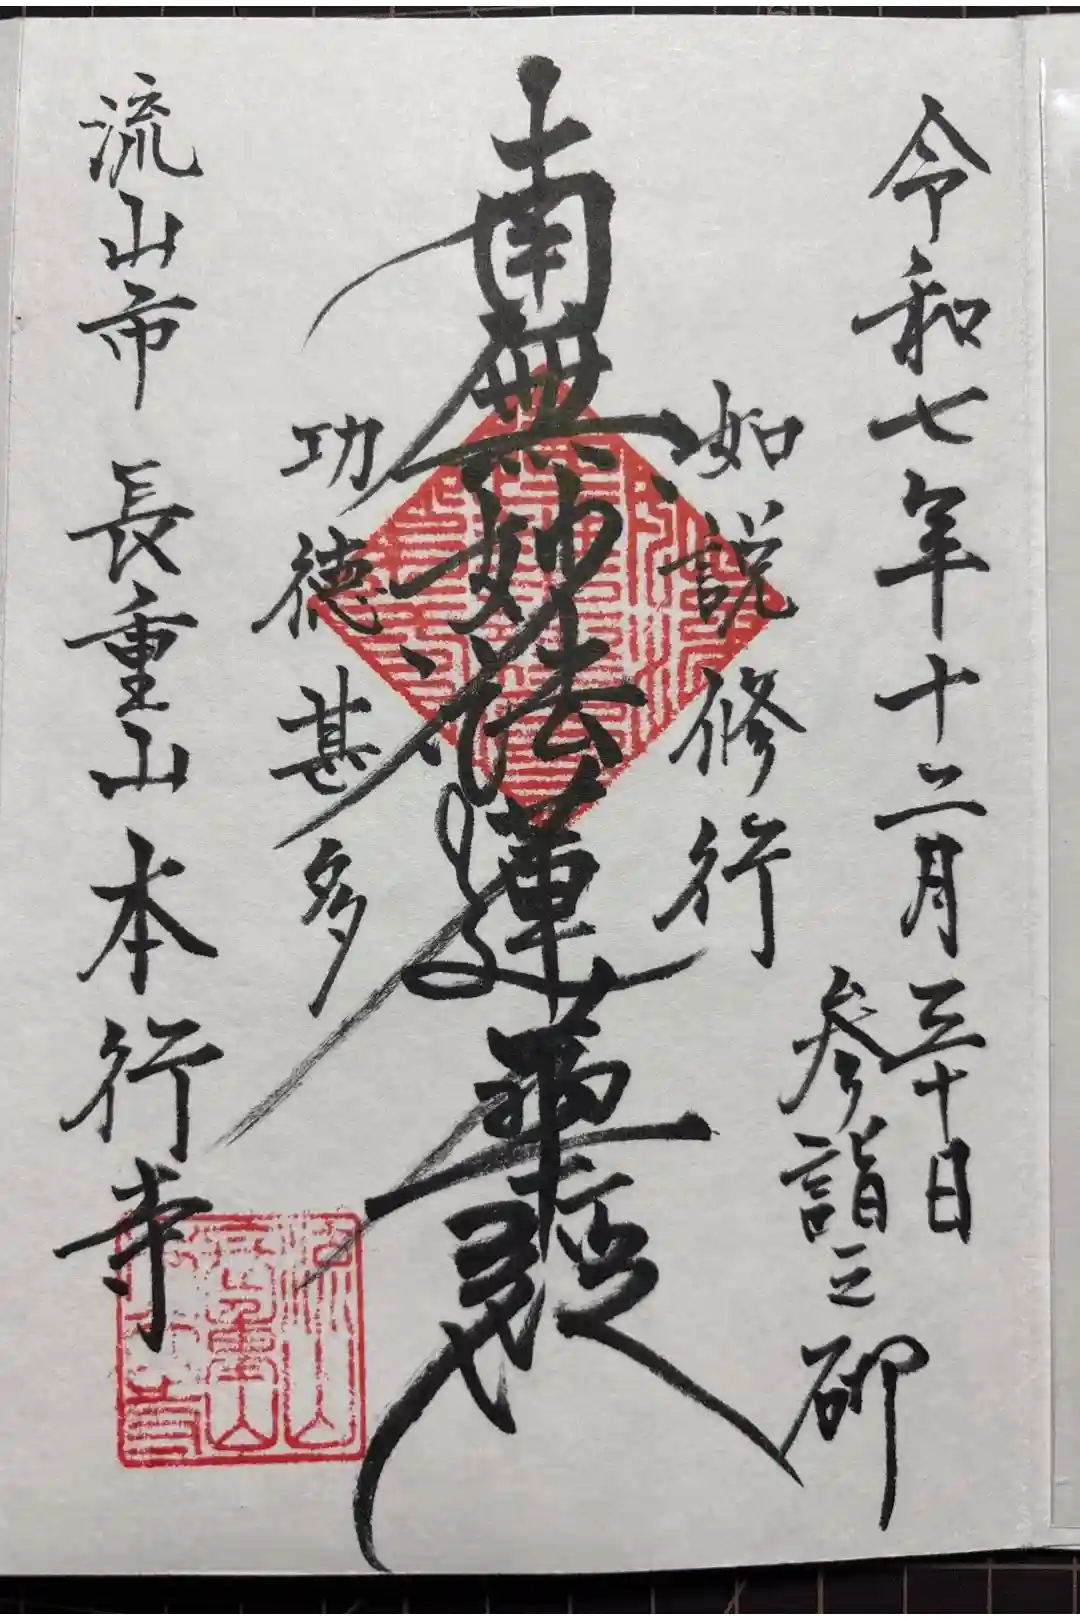 令和七年十二月三十日
参詣之砌
如説修行
南無妙法蓮華経
功徳甚多
流山市 長重山 本行寺